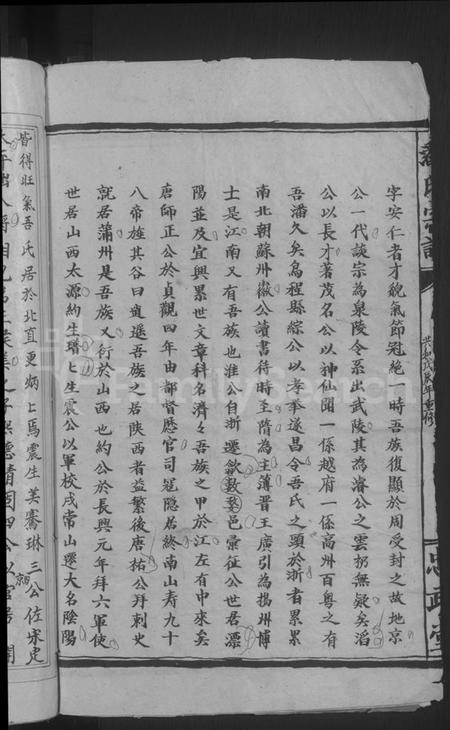 字安仁者才貌氣節冠絕一時吾族復顯於周受封之故地京
公一代談宗為泉陵令系出武陵其為濬公之雲礽無疑矣滔
公以長才著茂名公以神仙聞一係越府一係高州百粤之有
吾潘久矣為程縣綜公以孝奉遂昌令吾氏之顯於浙者累累
南北朝蘇州徽公讀書待時至隋為主薄晉王廣引為揚州博
士是江南又有吾族也淮公自浙遷歙數婺邑彙征公世居溧
陽並及宜興累世文章科名濟々吾族之甲於江左有由來矣
唐師正公於貞觀四年由都督歷官司冠隱居終南山壽九十
八帝旌其谷曰逍遙吾族之居陝西者益繁後唐祐公拜刺史
就居蒲州是吾族又行於山西也約公於長興元年拜六軍使
世居山西太源約生瑨瑨生震公以軍校戍常山遷大名陰陽
皆得旺氣吾氏居於北直更炳焉震生美騫琳三公佐宋定
共和戊辰年重修
忠政堂
FamilySearch